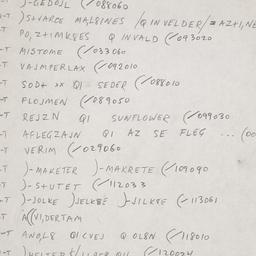 )-GEDOJL (/088060
-T )SWAROE MALSINES / Q INVELDER / = AZ+1, NE
-T PO, Z+IMKSES Q INVALD (/093020
-T MISTOME (/033060
-T VAJMPERLAX (/092010
-T SOD+ ×× QI SEDER (/088010
-T FLOJMEN (/089050
-T REJZN QI SUNFLOWER (/099030
-T AFLEGZAJN QI AZ SE FLEG ... (00
-T VERIM (/029060
-T )-MAKETER )-MAKRETE (/109090
-T )-S+UTET (/112033
-T )-JOLKE )JELKBE )-JILKTE (/113061
-T A((VI,DERTAM
-T ANO,L8 QI CVEJ Q OL8N (/118010
(/120024